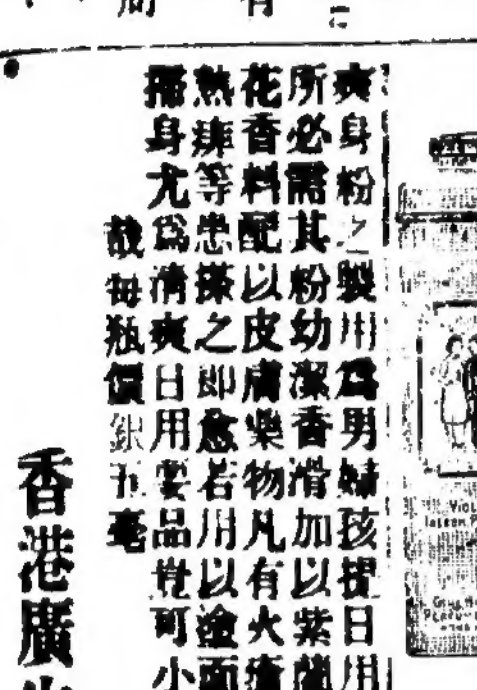 爽身粉之製用爲男婦孩提日用
所必需其粉幼潔香滑加以紫蘭
花香料配以皮膚藥物凡有火瘡
熱痱等患搽之即愈若用以塗面
搽身尤爲清爽日用要品豈可小
哉每瓶價銀五毫
香港廣